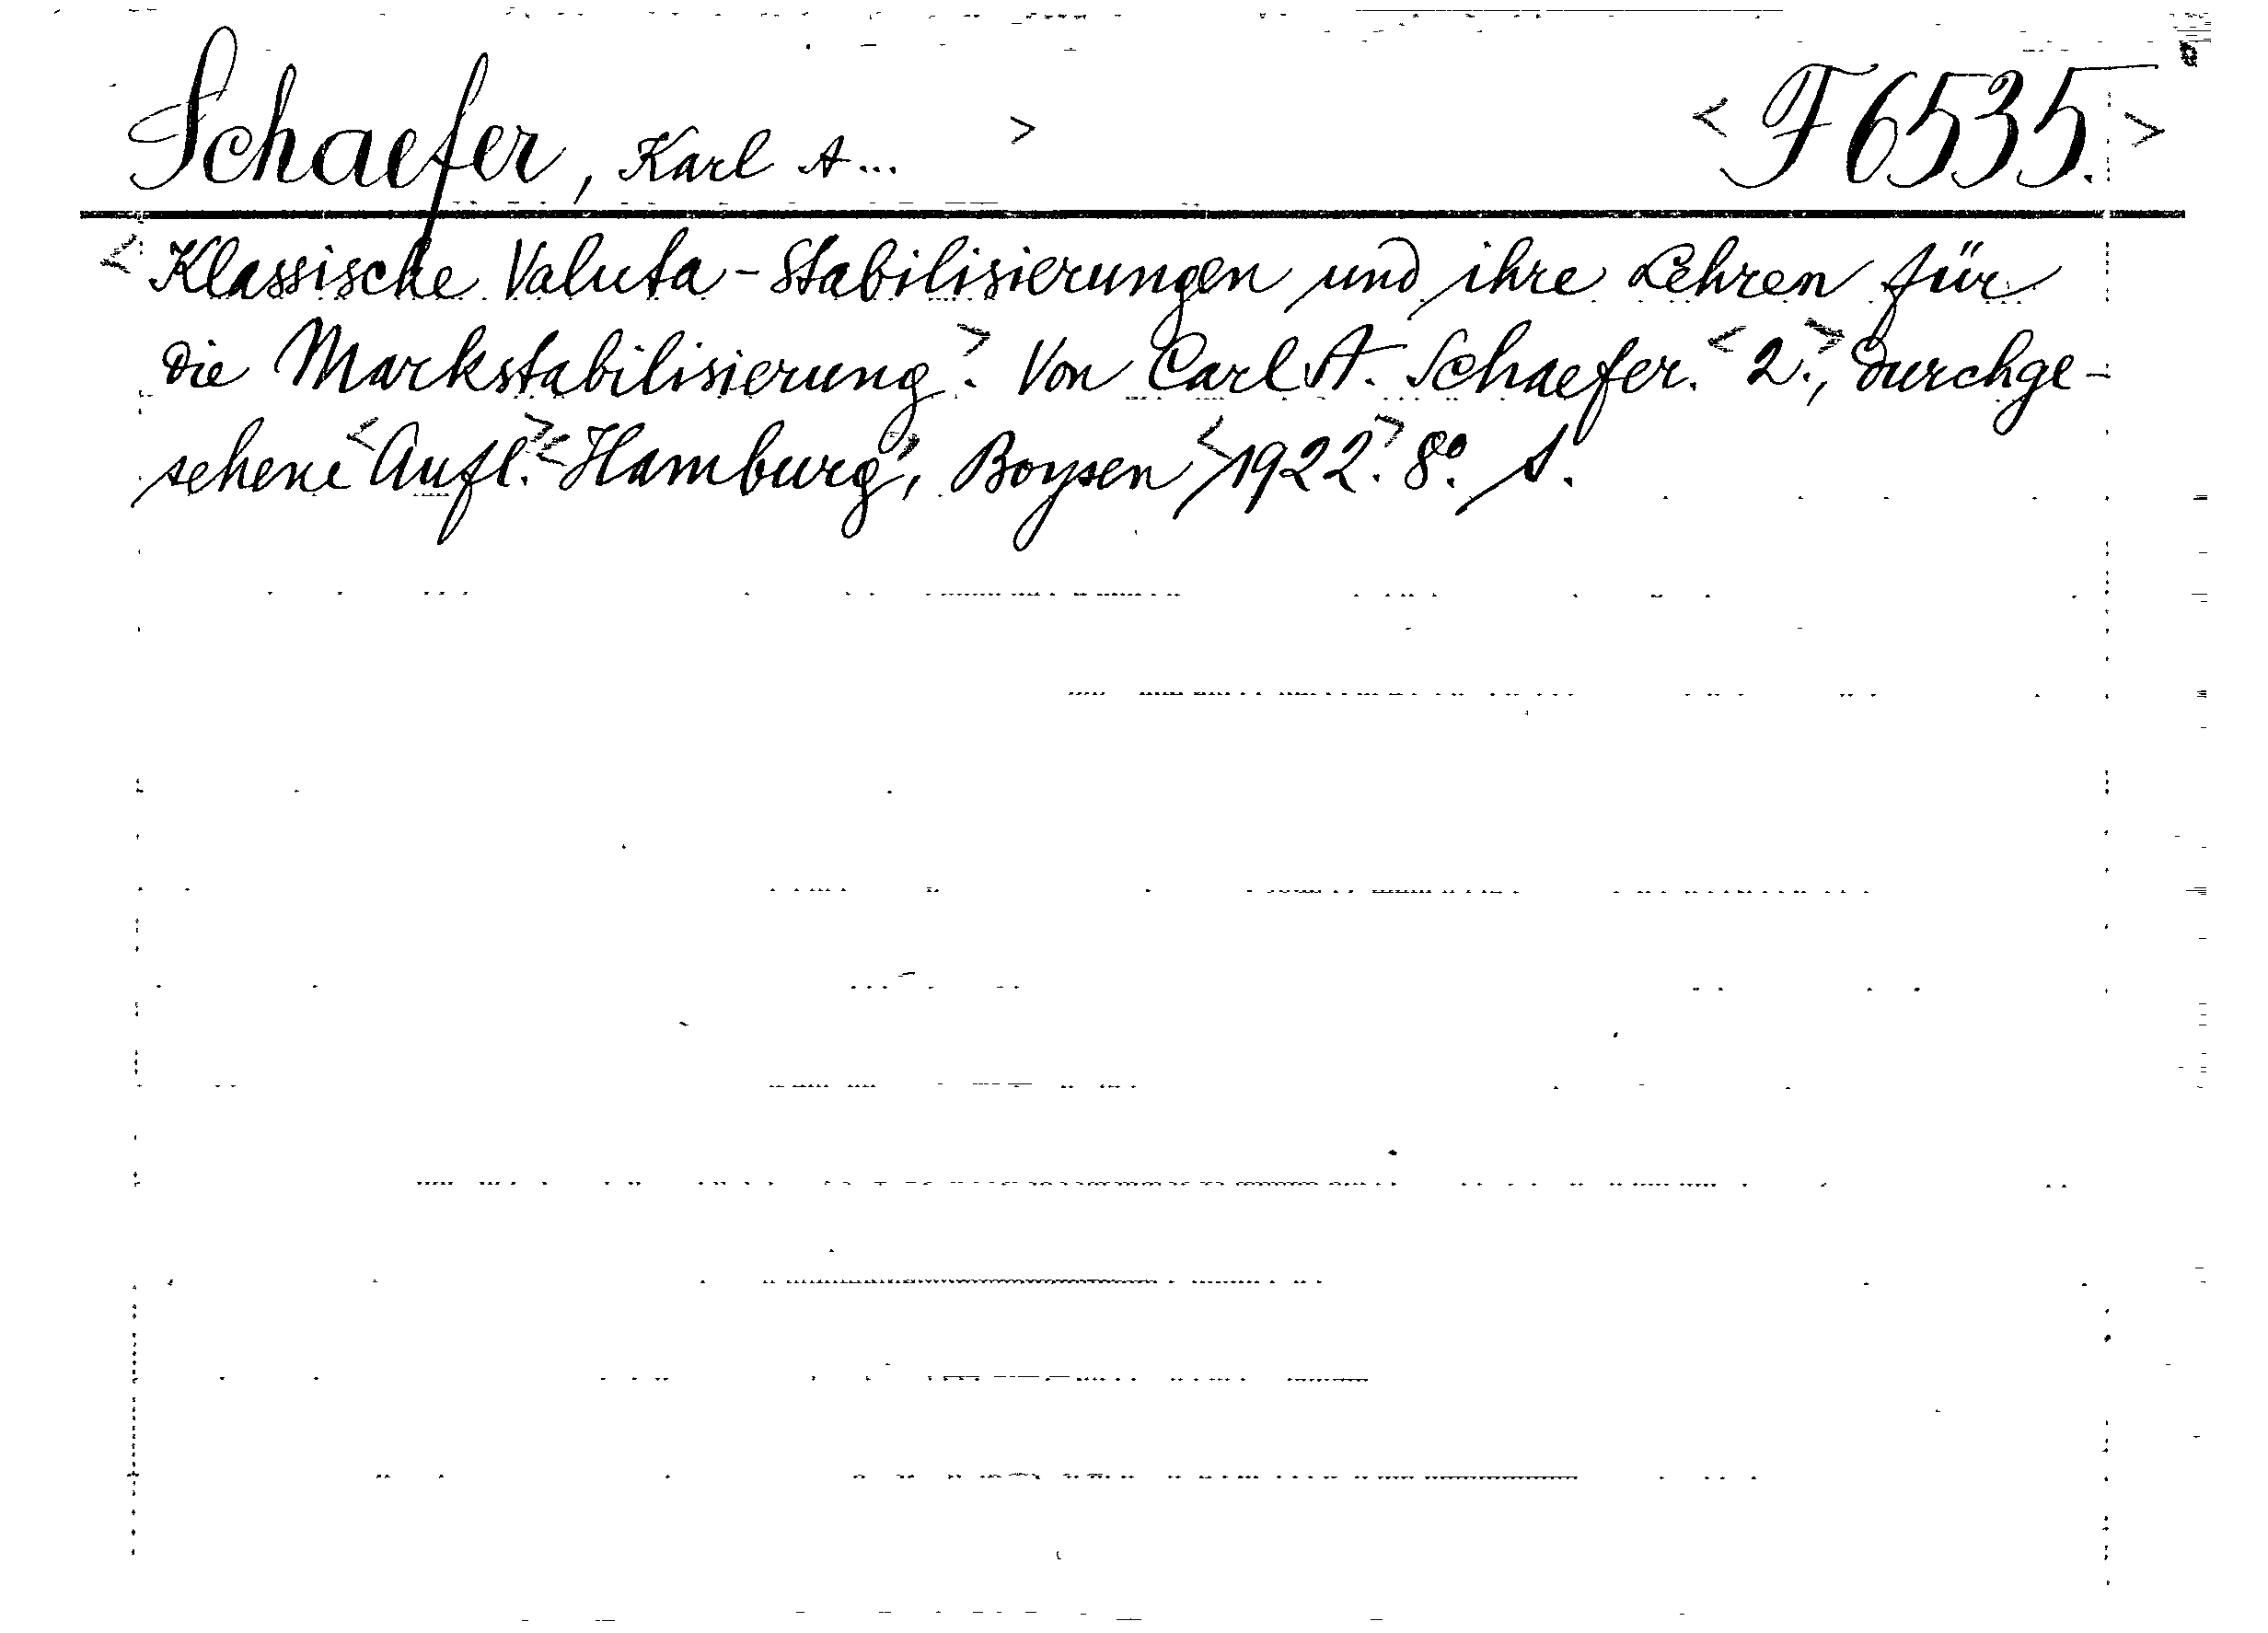 Schaefer, Karl A... > <F6535.>
<Klassische Valuta-Stabilisierungen und ihre Lehren für
die Markstabilisierung>. Von Carl A. Schaefer. <2.>, durchge-
sehene <Aufl.> <Hamburg>, Boysen <1922>. 8°. S.